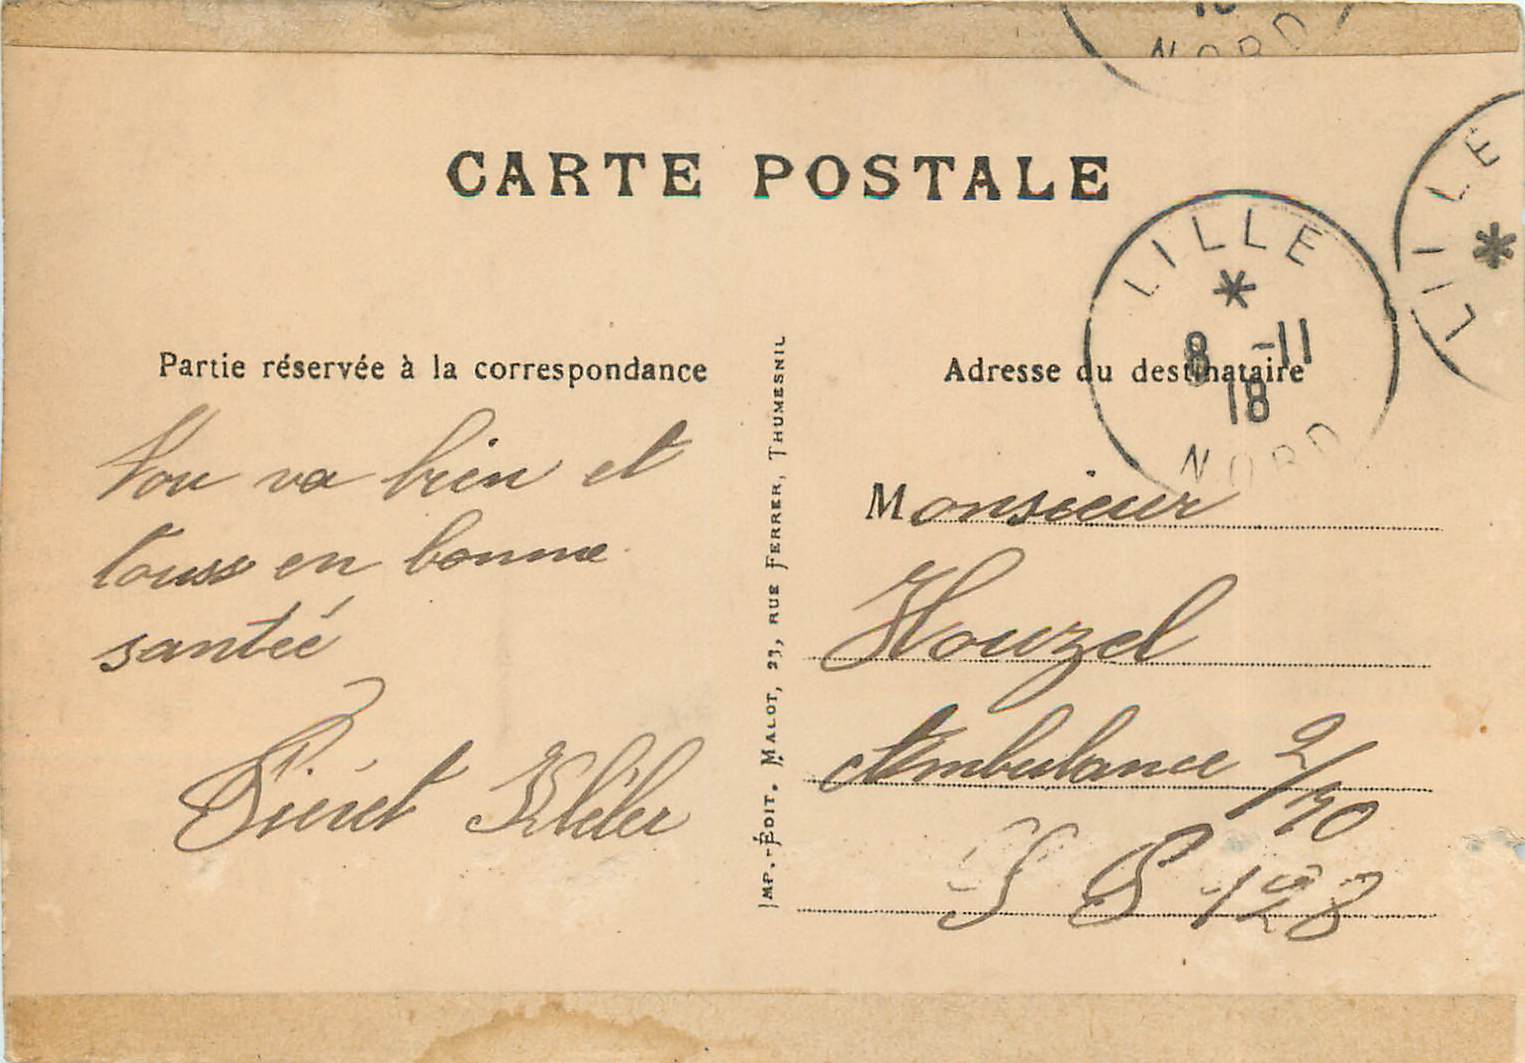 NORD
CARTE POSTALE
LILLE
LILLE
8 -11
18
NORD
Partie réservée à la correspondance
Adresse du destinataire
va bien et
touss en bonne
santéé
Monsieur
Houzel
Ambulance 2/70
S P 128
IMP.-ÉDIT. MALOT, 23, RUE FERRER, THUMESNIL